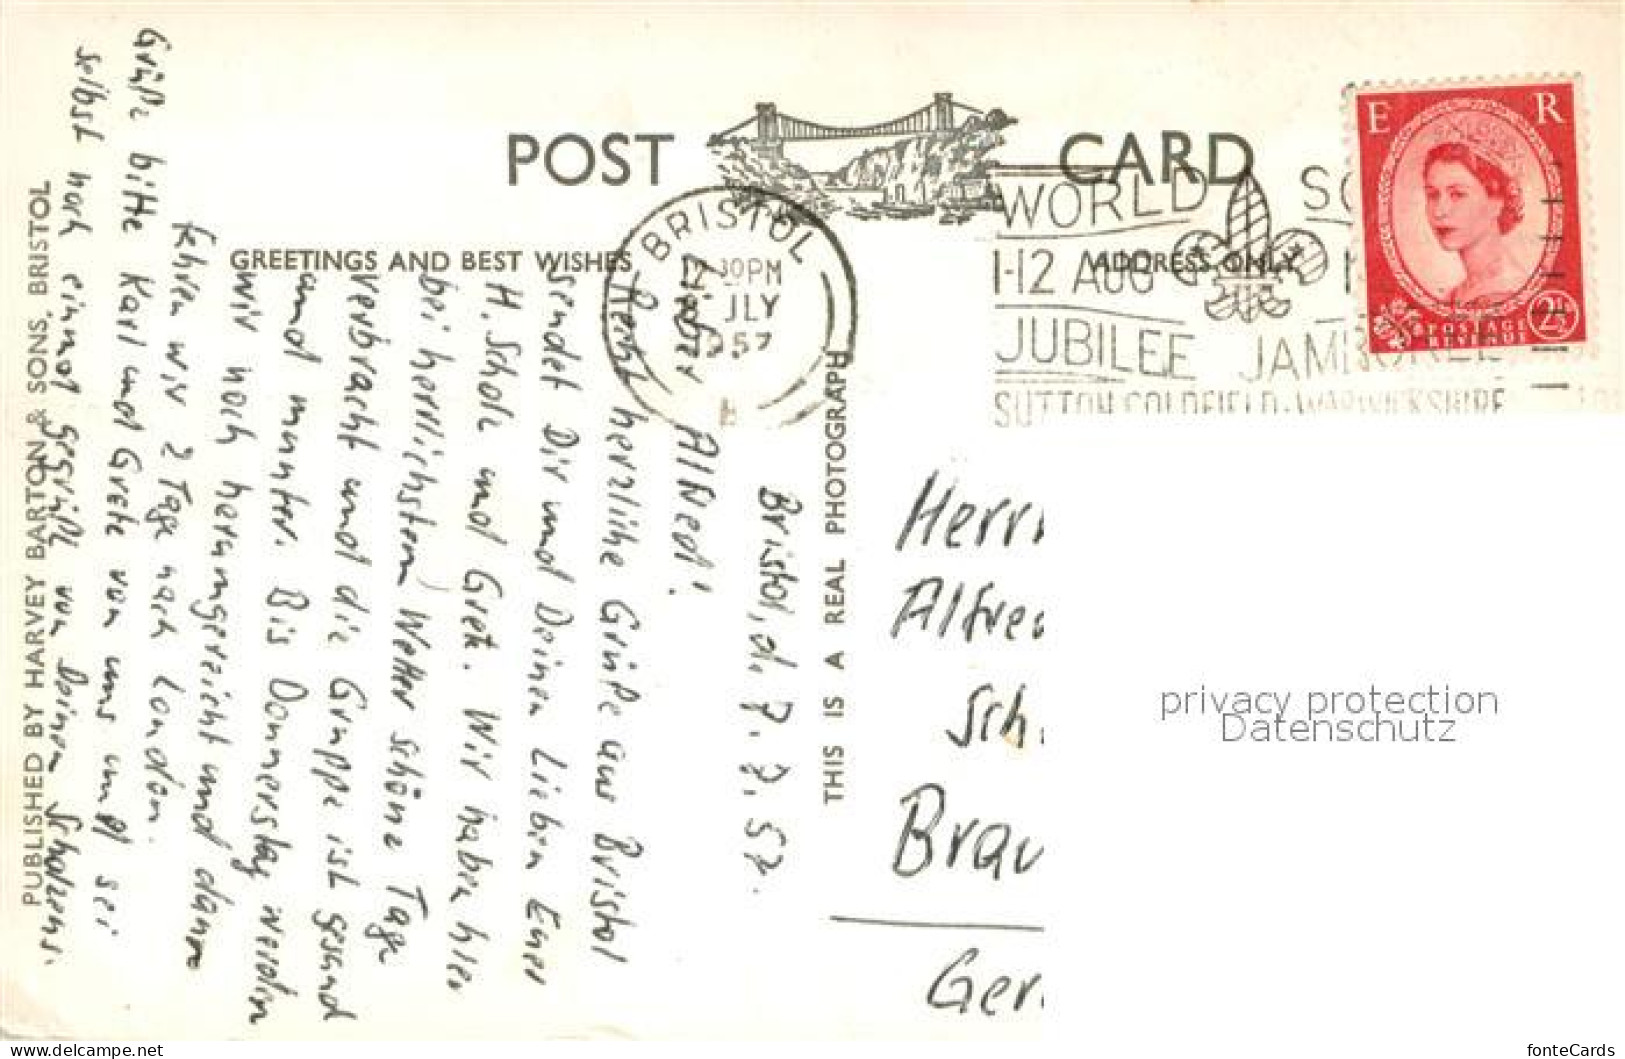 POST CARD
GREETINGS AND BEST WISHES
ADDRESS ONLY
E R
POSTAGE
REVENUE
2½
BRISTOL
12 30PM
JLY
1957
WORLD SC
1-12 AUG
JUBILEE JAMBOREE
SUTTON COLDFIELD·WARWICKSHIRE
THIS IS A REAL PHOTOGRAPH
PUBLISHED BY HARVEY BARTON & SONS, BRISTOL
Bristol, d. 7. 7. 57.
Lieber Alfred!
Recht herzliche Grüße aus Bristol
sendet Dir und Deinen Lieben Euer
H. Scholz und Gret. Wir haben hier
bei herrlichstem Wetter schöne Tage
verbracht und die Gruppe ist gesund
und munter. Bis Donnerstag werden
wir noch herumgereicht und dann
fahren wir 2 Tage nach London.
Grüße bitte Karl und Grete von uns und sei
selbst noch einmal gegrüßt von Deinen Scholzens.
Herrn
Alfred
Sch.
Brau
Ger.
privacy protection
Datenschutz
www.delcampe.net
fonteCards